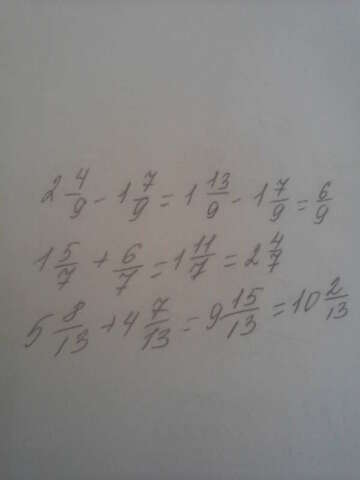 2 4/9 - 1 7/9 = 1 13/9 - 1 7/9 = 6/9
1 5/7 + 6/7 = 1 11/7 = 2 4/7
5 8/13 + 4 7/13 = 9 15/13 = 10 2/13